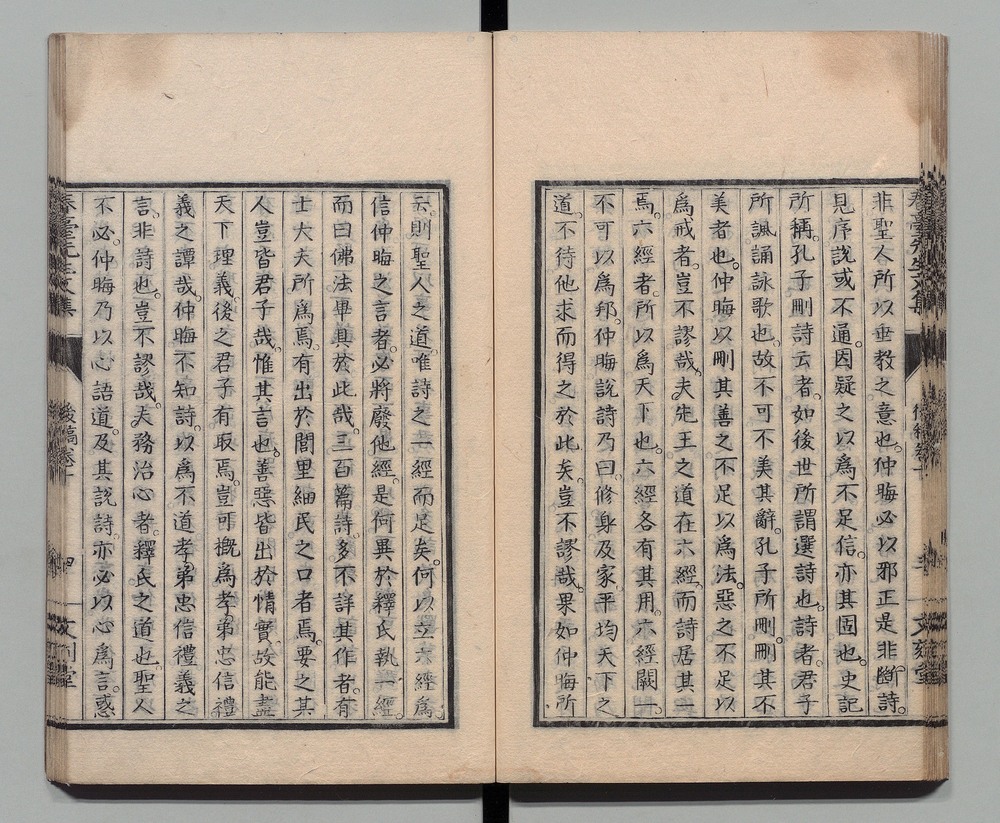 非聖人所以垂教之意也。仲晦必以邪正是非斷詩。
見序說或不通。因疑之以爲不足信。亦其固也。史記
所稱。孔子刪詩云者。如後世所謂選詩也。詩者。君子
所諷誦詠歌也。故不可不美其辭。孔子所刪。刪其不
美者也。仲晦以刪其善之不足以爲法。惡之不足以
爲戒者。豈不謬哉。夫先王之道在六經。而詩居其一
焉。六經者。所以爲天下也。六經各有其用。六經闕一。
不可以爲邦。仲晦說詩乃曰。修身及家。平均天下之
道。不待他求而得之於此矣。豈不謬哉。果如仲晦所
春臺先生文集
後稿卷十
四
文刻堂
云。則聖人之道。唯詩之一經而足矣。何以立六經爲。
信仲晦之言者。必將廢他經。是何異於釋氏執一經。
而曰佛法畢具於此哉。三百篇詩。多不詳其作者。有
士大夫所爲焉。有出於閭里細民之口者焉。要之其
人豈皆君子哉。惟其言也。善惡皆出於情實。故能盡
天下理義。後之君子有取焉。豈可概爲孝弟忠信禮
義之譚哉。仲晦不知詩。以爲不道孝弟忠信禮義之
言。非詩也。豈不謬哉。夫務治心者。釋氏之道也。聖人
不必。仲晦乃以心語道。及其說詩。亦必以心爲言。惑